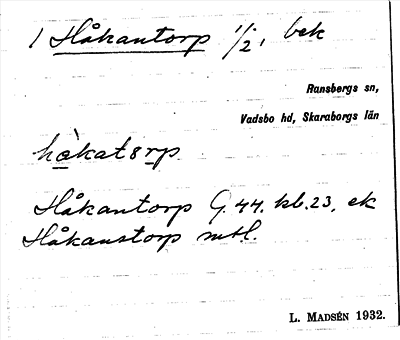 1 Håkantorp 1/2, bek
Ransbergs sn,
Vadsbo hd, Skaraborgs län
hàkat8rp
Håkantorp G. 44. kb. 23, ek
Håkanstorp mtl.
L. MADSÉN 1932.